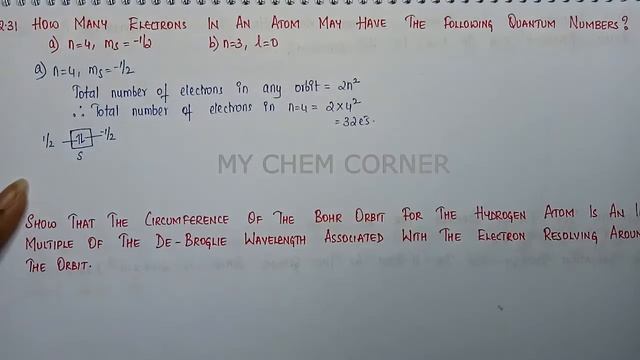 2.31 HOW MANY ELECTRONS IN AN ATOM MAY HAVE THE FOLLOWING QUANTUM NUMBERS?
a) n=4, ms = -1/2 b) n=3, l=0
a) n=4, ms = -1/2
Total number of electrons in any orbit = 2n²
∴ Total number of electrons in n=4 = 2×4²
= 32 e's.
1/2 ⥮ -1/2
S
MY CHEM CORNER
SHOW THAT THE CIRCUMFERENCE OF THE BOHR ORBIT FOR THE HYDROGEN ATOM IS AN
MULTIPLE OF THE DE-BROGLIE WAVELENGTH ASSOCIATED WITH THE ELECTRON RESOLVING AROUN
THE ORBIT.